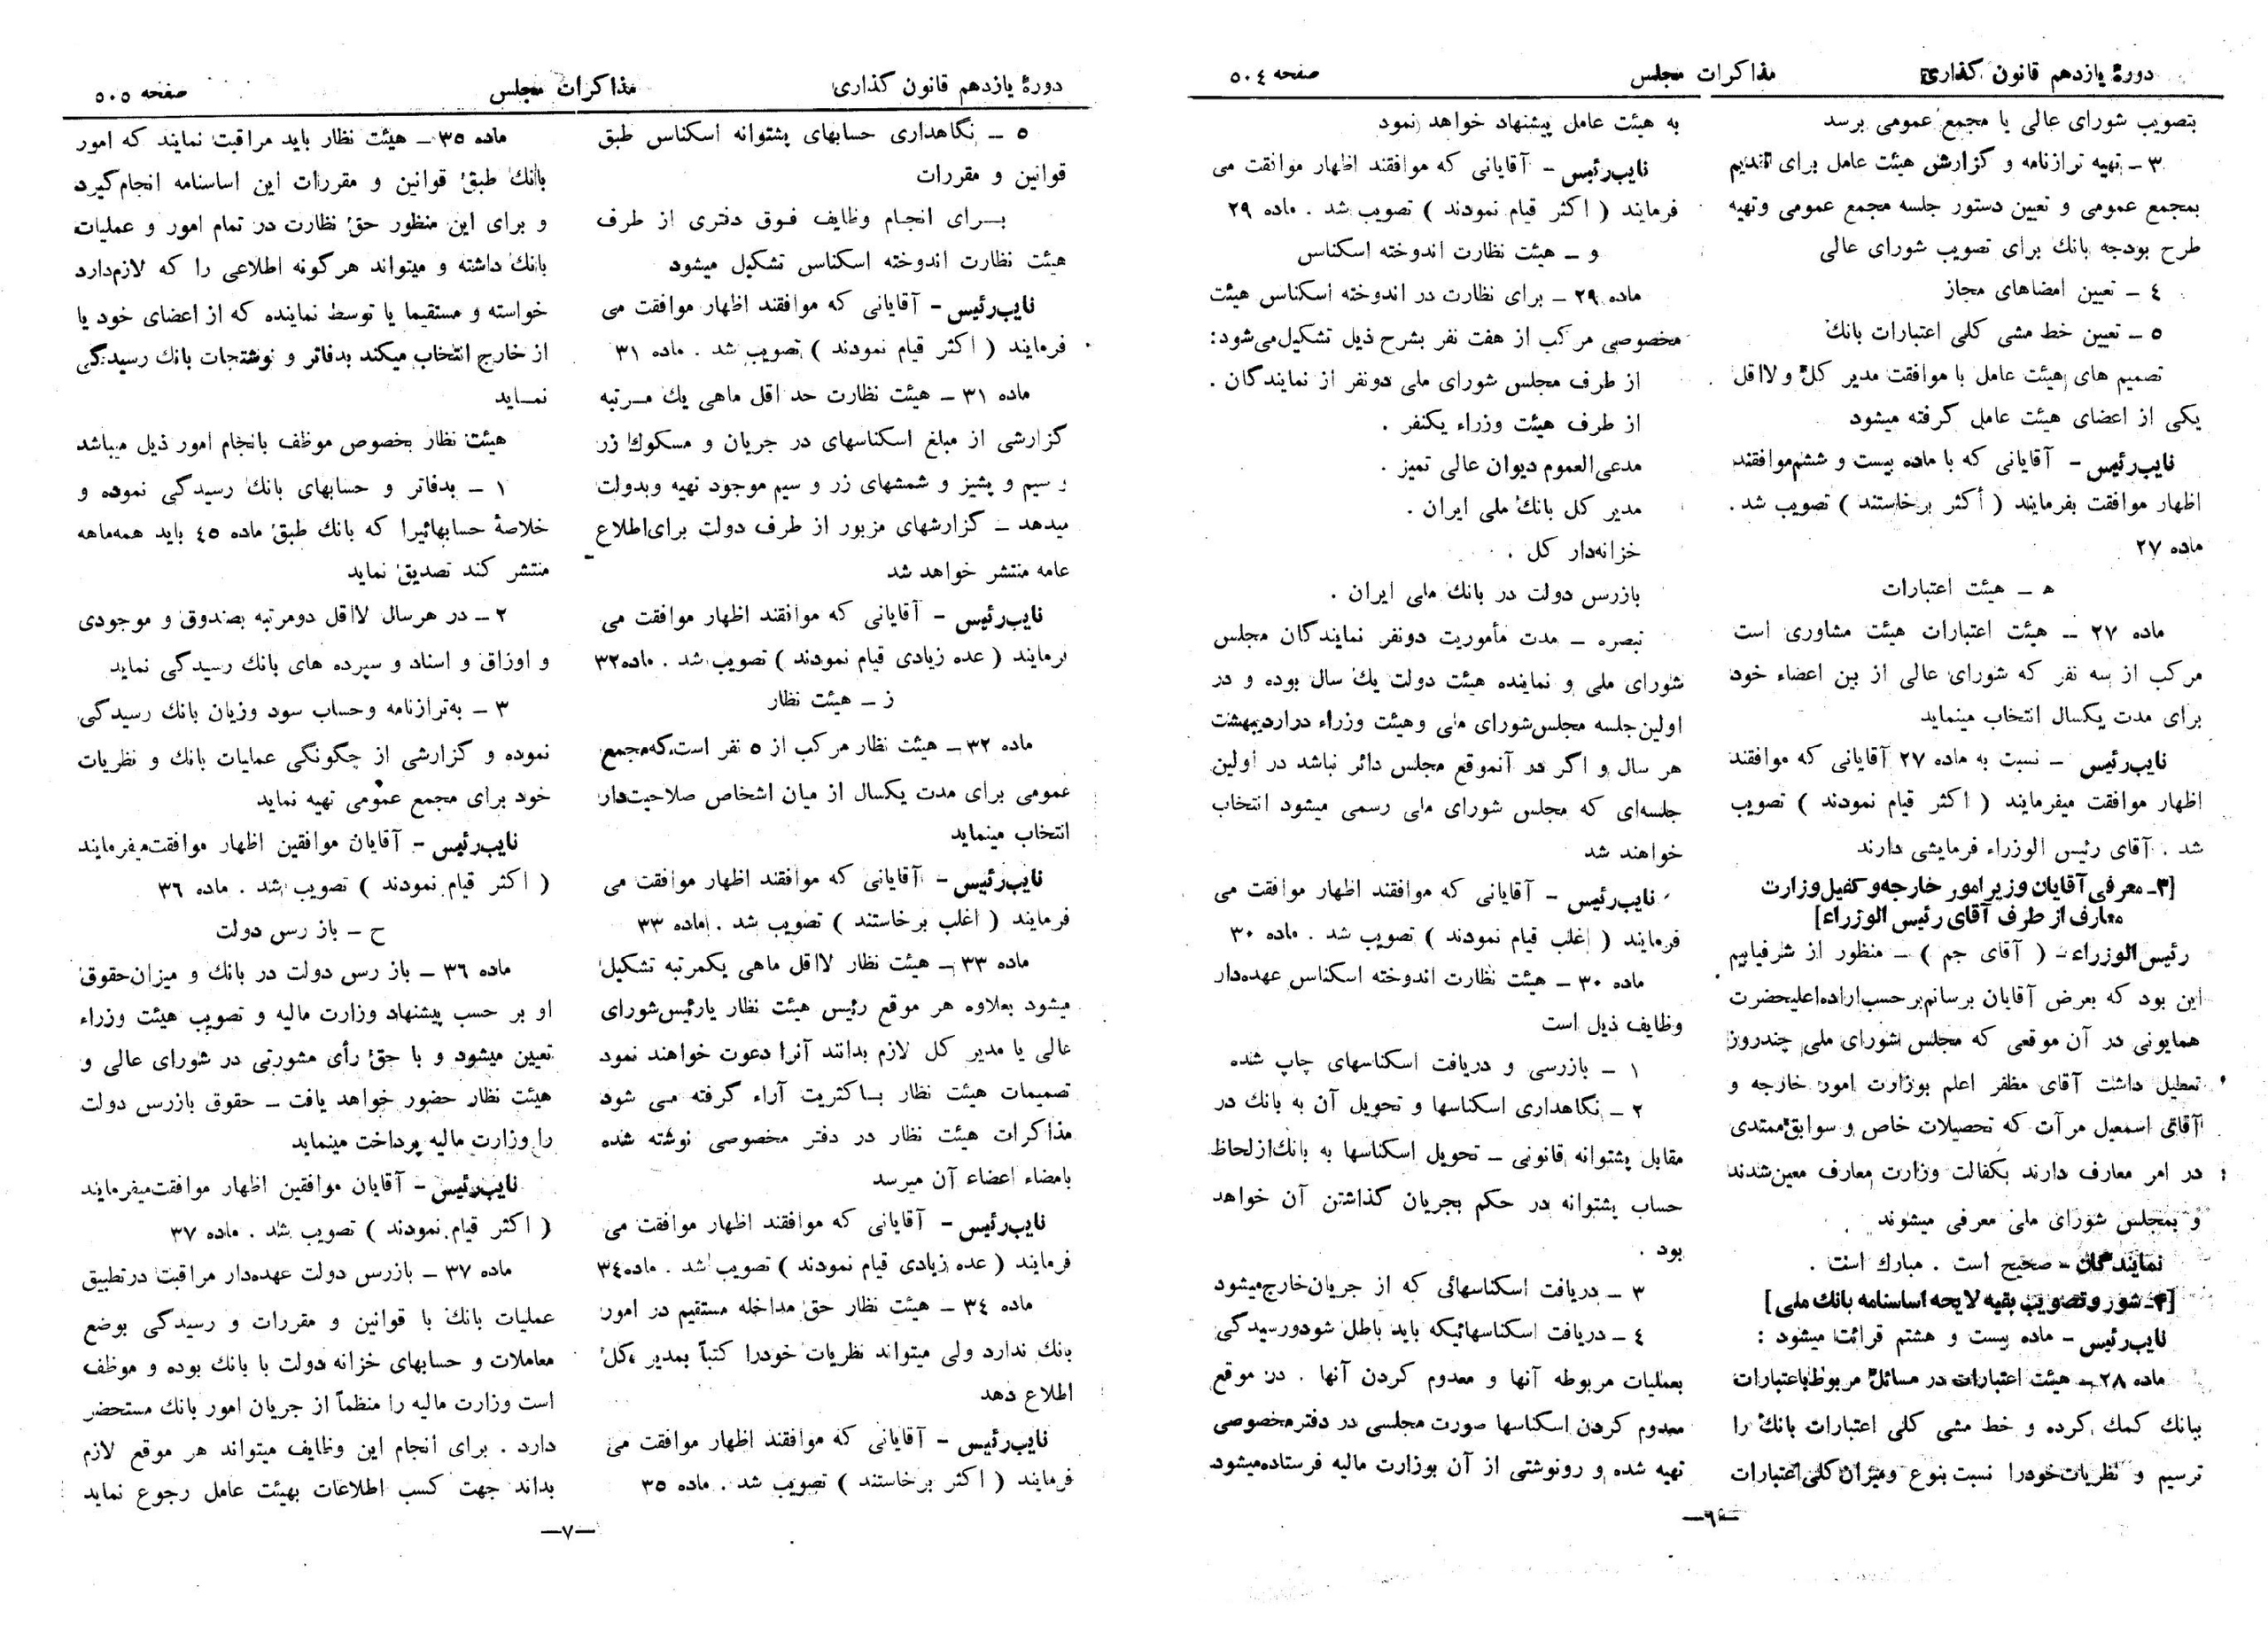 دورهٔ یازدهم قانون گذاری
مذاکرات مجلس
صفحه ٥٠٤
بتصویب شورای عالی یا مجمع عمومی برسد
٣ ـ تهیه ترازنامه و گزارش هیئت عامل برای تقدیم
بمجمع عمومی و تعیین دستور جلسه مجمع عمومی وتهیه
طرح بودجه بانك برای تصویب شورای عالی
٤ ـ تعیین امضاهای مجاز
٥ ـ تعیین خط مشی کلی اعتبارات بانك
تصمیم های هیئت عامل با موافقت مدیر کل و لااقل
یکی از اعضای هیئت عامل گرفته میشود
نایب‌رئیس ـ آقایانی که با ماده بیست و ششم‌موافقند
اظهار موافقت بفرمایند ( أکثر برخاستند ) تصویب شد .
ماده ٢٧
ه ـ هیئت اعتبارات
ماده ٢٧ ـ هیئت اعتبارات هیئت مشاوری است
مرکب از سه نفر که شورای عالی از بین اعضاء خود
برای مدت یکسال انتخاب مینماید
نایب‌رئیس ـ نسبت به ماده ٢٧ آقایانی که موافقند
اظهار موافقت میفرمایند ( اکثر قیام نمودند ) تصویب
شد . آقای رئیس الوزراء فرمایشی دارند
[٣ـ معرفی آقایان وزیر امور خارجه و کفیل وزارت
معارف از طرف آقای رئیس الوزراء]
رئیس‌الوزراء ـ ( آقای جم ) ـ منظور از شرفیابیم
این بود که بعرض آقایان برسانم‌برحسب‌اراده‌اعلیحضرت
همایونی در آن موقعی که مجلس شورای ملی چندروز
تعطیل داشت آقای مظفر اعلم بوزارت امور خارجه و
آقای اسمعیل مرآت که تحصیلات خاص و سوابق‌ممتدی
در امر معارف دارند بکفالت وزارت معارف معین‌شدند
و بمجلس شورای ملی معرفی میشوند
نمایندگان ـ صحیح است . مبارك است .
[٤ـ شور و تصویب بقیه لایحه اساسنامه بانك ملی]
نایب‌رئیس ـ ماده بیست و هشتم قرائت میشود :
ماده ٢٨ ـ هیئت اعتبارات در مسائل مربوط‌باعتبارات
ببانك کمك کرده و خط مشی کلی اعتبارات بانك را
ترسیم و نظریات‌خودرا نسبت بنوع ومیزان‌کلی‌اعتبارات
به هیئت عامل پیشنهاد خواهد نمود
نایب‌رئیس ـ آقایانی که موافقند اظهار موافقت می
فرمایند ( اکثر قیام نمودند ) تصویب شد . ماده ٢٩
و ـ هیئت نظارت اندوخته اسکناس
ماده ٢٩ ـ برای نظارت در اندوخته اسکناس هیئت
مخصوصی مرکب از هفت نفر بشرح ذیل تشکیل‌می‌شود:
از طرف مجلس شورای ملی دونفر از نمایندگان .
از طرف هیئت وزراء یکنفر .
مدعی‌العموم دیوان عالی تمیز .
مدیر کل بانك ملی ایران .
خزانه‌دار کل .
بازرس دولت در بانك ملی ایران .
تبصره ـ مدت مأموریت دونفر نمایندگان مجلس
شورای ملی و نماینده هیئت دولت یك سال بوده و در
اولین‌جلسه مجلس‌شورای ملی وهیئت وزراء دراردیبهشت
هر سال و اگر در آنموقع مجلس دائر نباشد در اولین
جلسه‌ای که مجلس شورای ملی رسمی میشود انتخاب
خواهند شد
نایب‌رئیس ـ آقایانی که موافقند اظهار موافقت می
فرمایند ( اغلب قیام نمودند ) تصویب شد . ماده ٣٠
ماده ٣٠ ـ هیئت نظارت اندوخته اسکناس عهده‌دار
وظایف ذیل است
١ ـ بازرسی و دریافت اسکناسهای چاپ شده
٢ ـ نگاهداری اسکناسها و تحویل آن به بانك در
مقابل پشتوانه قانونی ـ تحویل اسکناسها به بانك‌ازلحاظ
حساب پشتوانه در حکم بجریان گذاشتن آن خواهد
بود .
٣ ـ دریافت اسکناسهائی که از جریان‌خارج‌میشود
٤ ـ دریافت اسکناسهائیکه باید باطل شودورسیدگی
بعملیات مربوطه آنها و معدوم کردن آنها . در موقع
معدوم کردن اسکناسها صورت مجلسی در دفترمخصوصی
تهیه شده و رونوشتی از آن بوزارت مالیه فرستاده‌میشود
ـ٦ـ
دورهٔ یازدهم قانون گذاری
مذاکرات مجلس
صفحه ٥٠٥
٥ ـ نگاهداری حسابهای پشتوانه اسکناس طبق
قوانین و مقررات
بـرای انجـام وظایف فـوق دفتری از طرف
هیئت نظارت اندوخته اسکناس تشکیل میشود
نایب‌رئیس ـ آقایانی که موافقند اظهار موافقت می
فرمایند ( اکثر قیام نمودند ) تصویب شد . ماده ٣١
ماده ٣١ ـ هیئت نظارت حد اقل ماهی یك مـرتبه
گزارشی از مبلغ اسکناسهای در جریان و مسکوك زر
و سیم و پشیز و شمشهای زر و سیم موجود تهیه وبدولت
میدهد ـ گزارشهای مزبور از طرف دولت برای‌اطلاع
عامه منتشر خواهد شد
نایب‌رئیس ـ آقایانی که موافقند اظهار موافقت می
فرمایند ( عده زیادی قیام نمودند ) تصویب شد . ماده٣٢
ز ـ هیئت نظار
ماده ٣٢ ـ هیئت نظار مرکب از ٥ نفر است،که‌مجمع
عمومی برای مدت یکسال از میان اشخاص صلاحیت‌دار
انتخاب مینماید
نایب‌رئیس ـ آقایانی که موافقند اظهار موافقت می
فرمایند ( اغلب برخاستند ) تصویب شد . ماده ٣٣
ماده ٣٣ ـ هیئت نظار لااقل ماهی یکمرتبه تشکیل
میشود بعلاوه هر موقع رئیس هیئت نظار یارئیس‌شورای
عالی یا مدیر کل لازم بدانند آنرا دعوت خواهند نمود
تصمیمات هیئت نظار بـاکثریت آراء گرفته می شود
مذاکرات هیئت نظار در دفتر مخصوصی نوشته شده
بامضاء اعضاء آن میرسد
نایب‌رئیس ـ آقایانی که موافقند اظهار موافقت می
فرمایند ( عده زیادی قیام نمودند ) تصویب شد . ماده٣٤
ماده ٣٤ ـ هیئت نظار حق مداخله مستقیم در امور
بانك ندارد ولی میتواند نظریات خودرا کتباً بمدیر کل
اطلاع دهد
نایب‌رئیس ـ آقایانی که موافقند اظهار موافقت می
فرمایند ( اکثر برخاستند ) تصویب شد . ماده ٣٥
ماده ٣٥ ـ هیئت نظار باید مراقبت نمایند که امور
بانك طبق قوانین و مقررات این اساسنامه انجام‌گیرد
و برای این منظور حق نظارت در تمام امور و عملیات
بانك داشته و میتواند هرگونه اطلاعی را که لازم‌دارد
خواسته و مستقیما یا توسط نماینده که از اعضای خود یا
از خارج انتخاب میکند بدفاتر و نوشتجات بانك رسیدگی
نمـاید
هیئت نظار بخصوص موظف بانجام امور ذیل میباشد
١ ـ بدفاتر و حسابهای بانك رسیدگی نموده و
خلاصهٔ حسابهائیرا که بانك طبق ماده ٤٥ باید همه‌ماهه
منتشر کند تصدیق نماید
٢ ـ در هرسال لااقل دومرتبه بصندوق و موجودی
و اوراق و اسناد و سپرده های بانك رسیدگی نماید
٣ ـ به‌ترازنامه وحساب سود وزیان بانك رسیدگی
نموده و گزارشی از چگونگی عملیات بانك و نظریات
خود برای مجمع عمومی تهیه نماید
نایب‌رئیس ـ آقایان موافقین اظهار موافقت‌میفرمایند
( اکثر قیام نمودند ) تصویب شد . ماده ٣٦
ح ـ باز رس دولت
ماده ٣٦ ـ باز رس دولت در بانك و میزان‌حقوق
او بر حسب پیشنهاد وزارت مالیه و تصویب هیئت وزراء
تعیین میشود و با حق رأی مشورتی در شورای عالی و
هیئت نظار حضور خواهد یافت ـ حقوق بازرس دولت
را وزارت مالیه پرداخت مینماید
نایب‌رئیس ـ آقایان موافقین اظهار موافقت‌میفرمایند
( اکثر قیام نمودند ) تصویب شد . ماده ٣٧
ماده ٣٧ ـ بازرس دولت عهده‌دار مراقبت درتطبیق
عملیات بانك با قوانین و مقررات و رسیدگی بوضع
معاملات و حسابهای خزانه دولت با بانك بوده و موظف
است وزارت مالیه را منظماً از جریان امور بانك مستحضر
دارد . برای انجام این وظایف میتواند هر موقع لازم
بداند جهت کسب اطلاعات بهیئت عامل رجوع نماید
ـ٧ـ